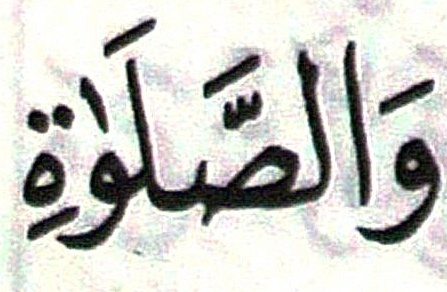 وَالصَّلَوٰةِ